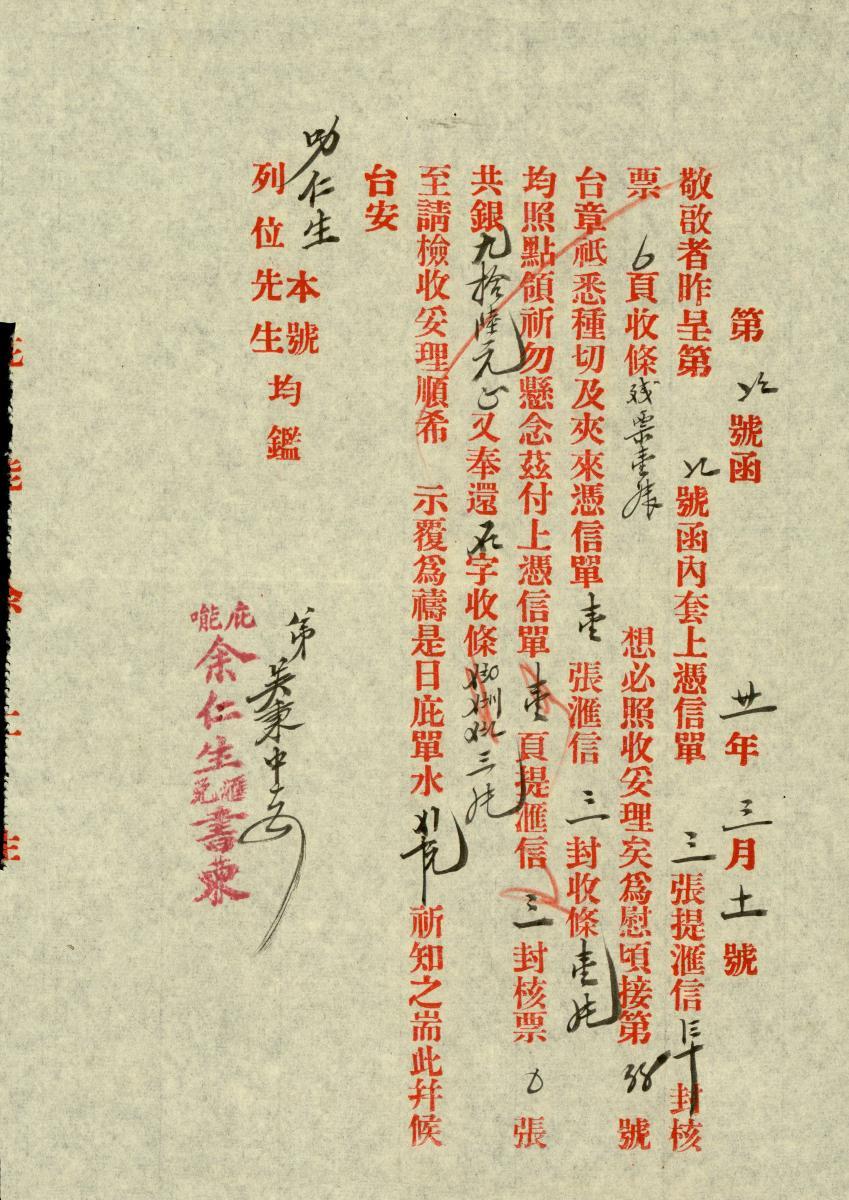 第 号函 廿年三月十一號
敬啟者昨呈第 號函內套上憑信單三張提滙信 封核
票 頁收條殘票壹张 想必照收妥理矣為慰頃接第 號
台章祗悉種切及夾來憑信單壹張滙信三封收條壹
均照點領祈勿懸念茲付上憑信單壹頁提滙信三封核票0張
共銀九拾陸元正又奉還 字收條 三
至請檢收妥理順希 示覆為禱是日庇單水 祈知之耑此幷候
台安
叻仁生本號
列位先生均鑑
弟吳秉中
庇能
余仁生滙兌書柬